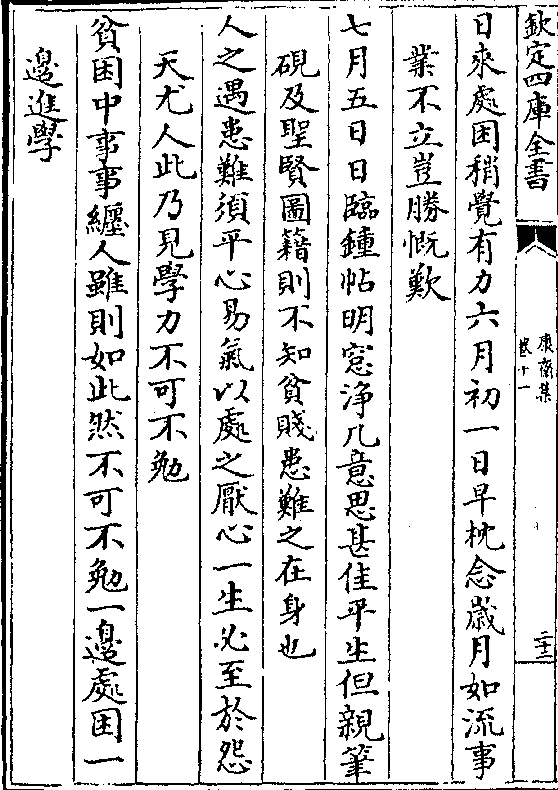 欽定四庫全書
康齋集
卷十一
二十二
日來處困稍覺有力六月初一日早枕念歲月如流事
業不立豈勝慨歎
七月五日日臨鍾帖明窓浄几意思甚佳平生但親筆
硯及聖賢圖籍則不知貧賤患難之在身也
人之遇患難須平心易氣以處之厭心一生必至於怨
天尤人此乃見學力不可不勉
貧困中事事纒人雖則如此然不可不勉一邊處困一
邊進學